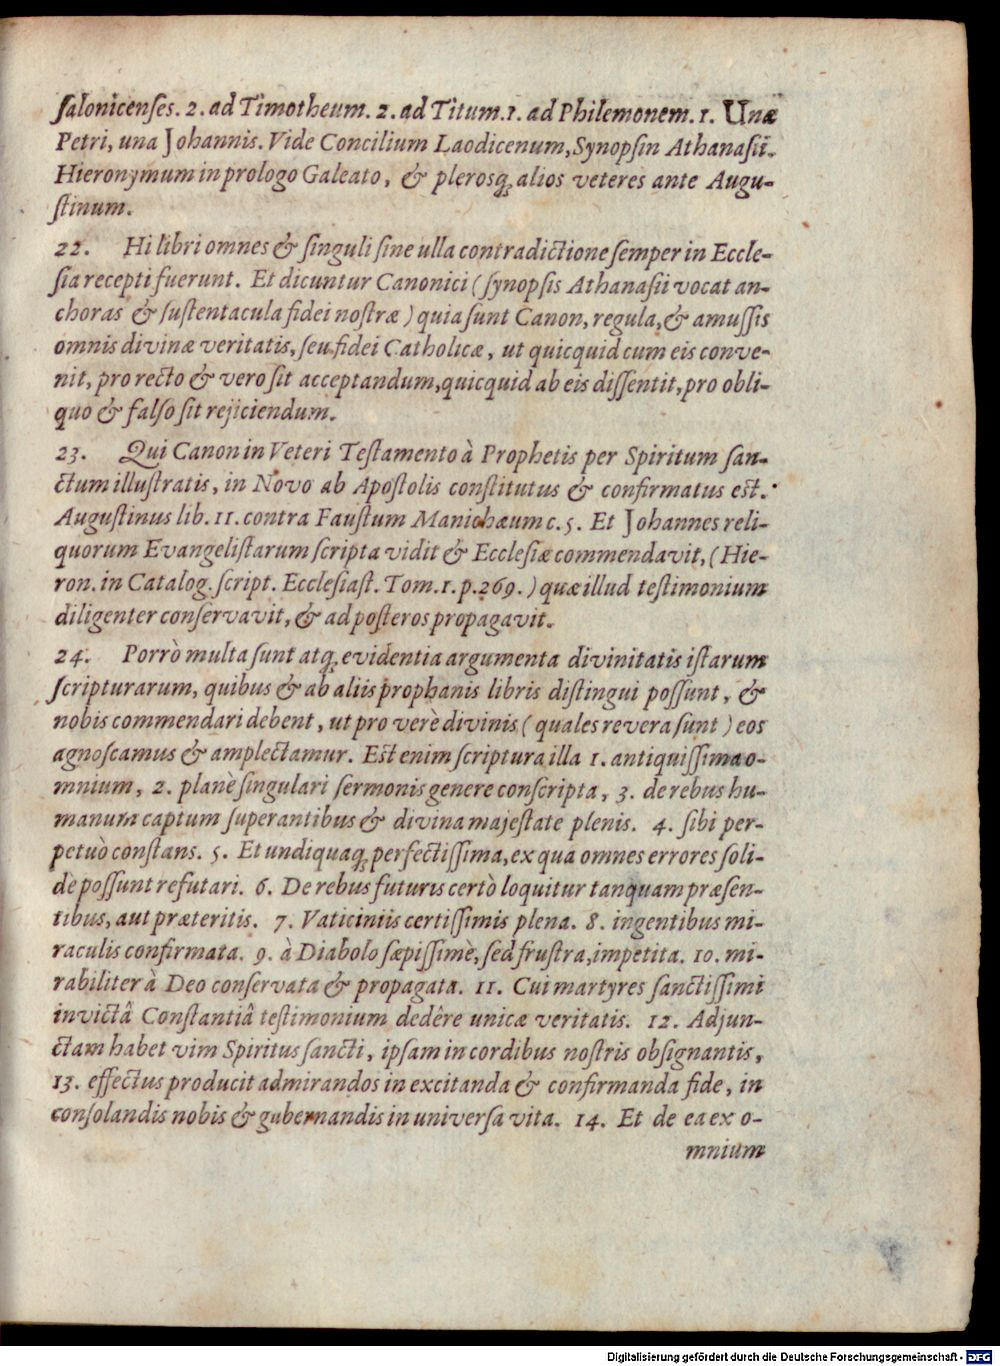 ſalonicenſes. 2. ad Timotheum. 2. ad Titum. 1. ad Philemonem. 1. Unæ
Petri, una Johannis. Vide Concilium Laodicenum, Synopſin Athanaſii.
Hieronymum in prologo Galeato, & pleroſq; alios veteres ante Augu-
ſtinum.
22. Hi libri omnes & ſinguli ſine ulla contradictione ſemper in Eccle-
ſia recepti fuerunt. Et dicuntur Canonici (ſynopſis Athanaſii vocat an-
choras & ſuſtentacula fidei noſtræ) quia ſunt Canon, regula, & amuſſis
omnis divinæ veritatis, ſeu fidei Catholicæ, ut quicquid cum eis conve-
nit, pro recto & vero ſit acceptandum, quicquid ab eis diſſentit, pro obli-
quo & falſo ſit rejiciendum.
23. Qui Canon in Veteri Teſtamento à Prophetis per Spiritum ſan-
ctum illuſtratis, in Novo ab Apoſtolis conſtitutus & confirmatus eſt.
Auguſtinus lib. 11. contra Fauſtum Manichæum c. 5. Et Johannes reli-
quorum Evangeliſtarum ſcripta vidit & Eccleſiæ commendavit, (Hie-
ron. in Catalog. ſcript. Eccleſiaſt. Tom. 1. p. 269.) quæ illud teſtimonium
diligenter conſervavit, & ad poſteros propagavit.
24. Porrò multa ſunt atq; evidentia argumenta divinitatis iſtarum
ſcripturarum, quibus & ab aliis prophanis libris diſtingui poſſunt, &
nobis commendari debent, ut pro verè divinis (quales revera ſunt) eos
agnoſcamus & amplectamur. Eſt enim ſcriptura illa 1. antiquiſſima o-
mnium, 2. planè ſingulari ſermonis genere conſcripta, 3. de rebus hu-
manum captum ſuperantibus & divina majeſtate plenis. 4. ſibi per-
petuò conſtans. 5. Et undiquaq; perfectiſſima, ex qua omnes errores ſoli-
dè poſſunt refutari. 6. De rebus futuris certò loquitur tanquam præſen-
tibus, aut præteritis. 7. Vaticiniis certiſſimis plena. 8. ingentibus mi-
raculis confirmata. 9. à Diabolo ſæpiſſimè, ſed fruſtra, impetita. 10. mi-
rabiliter à Deo conſervata & propagata. 11. Cui martyres ſanctiſſimi
invictâ Conſtantiâ teſtimonium dedêre unicæ veritatis. 12. Adjun-
ctam habet vim Spiritus ſancti, ipſam in cordibus noſtris obſignantis,
13. effectus producit admirandos in excitanda & confirmanda fide, in
conſolandis nobis & gubernandis in univerſa vita. 14. Et de ea ex o-
mnium
Digitalisierung gefördert durch die Deutsche Forschungsgemeinschaft - DFG